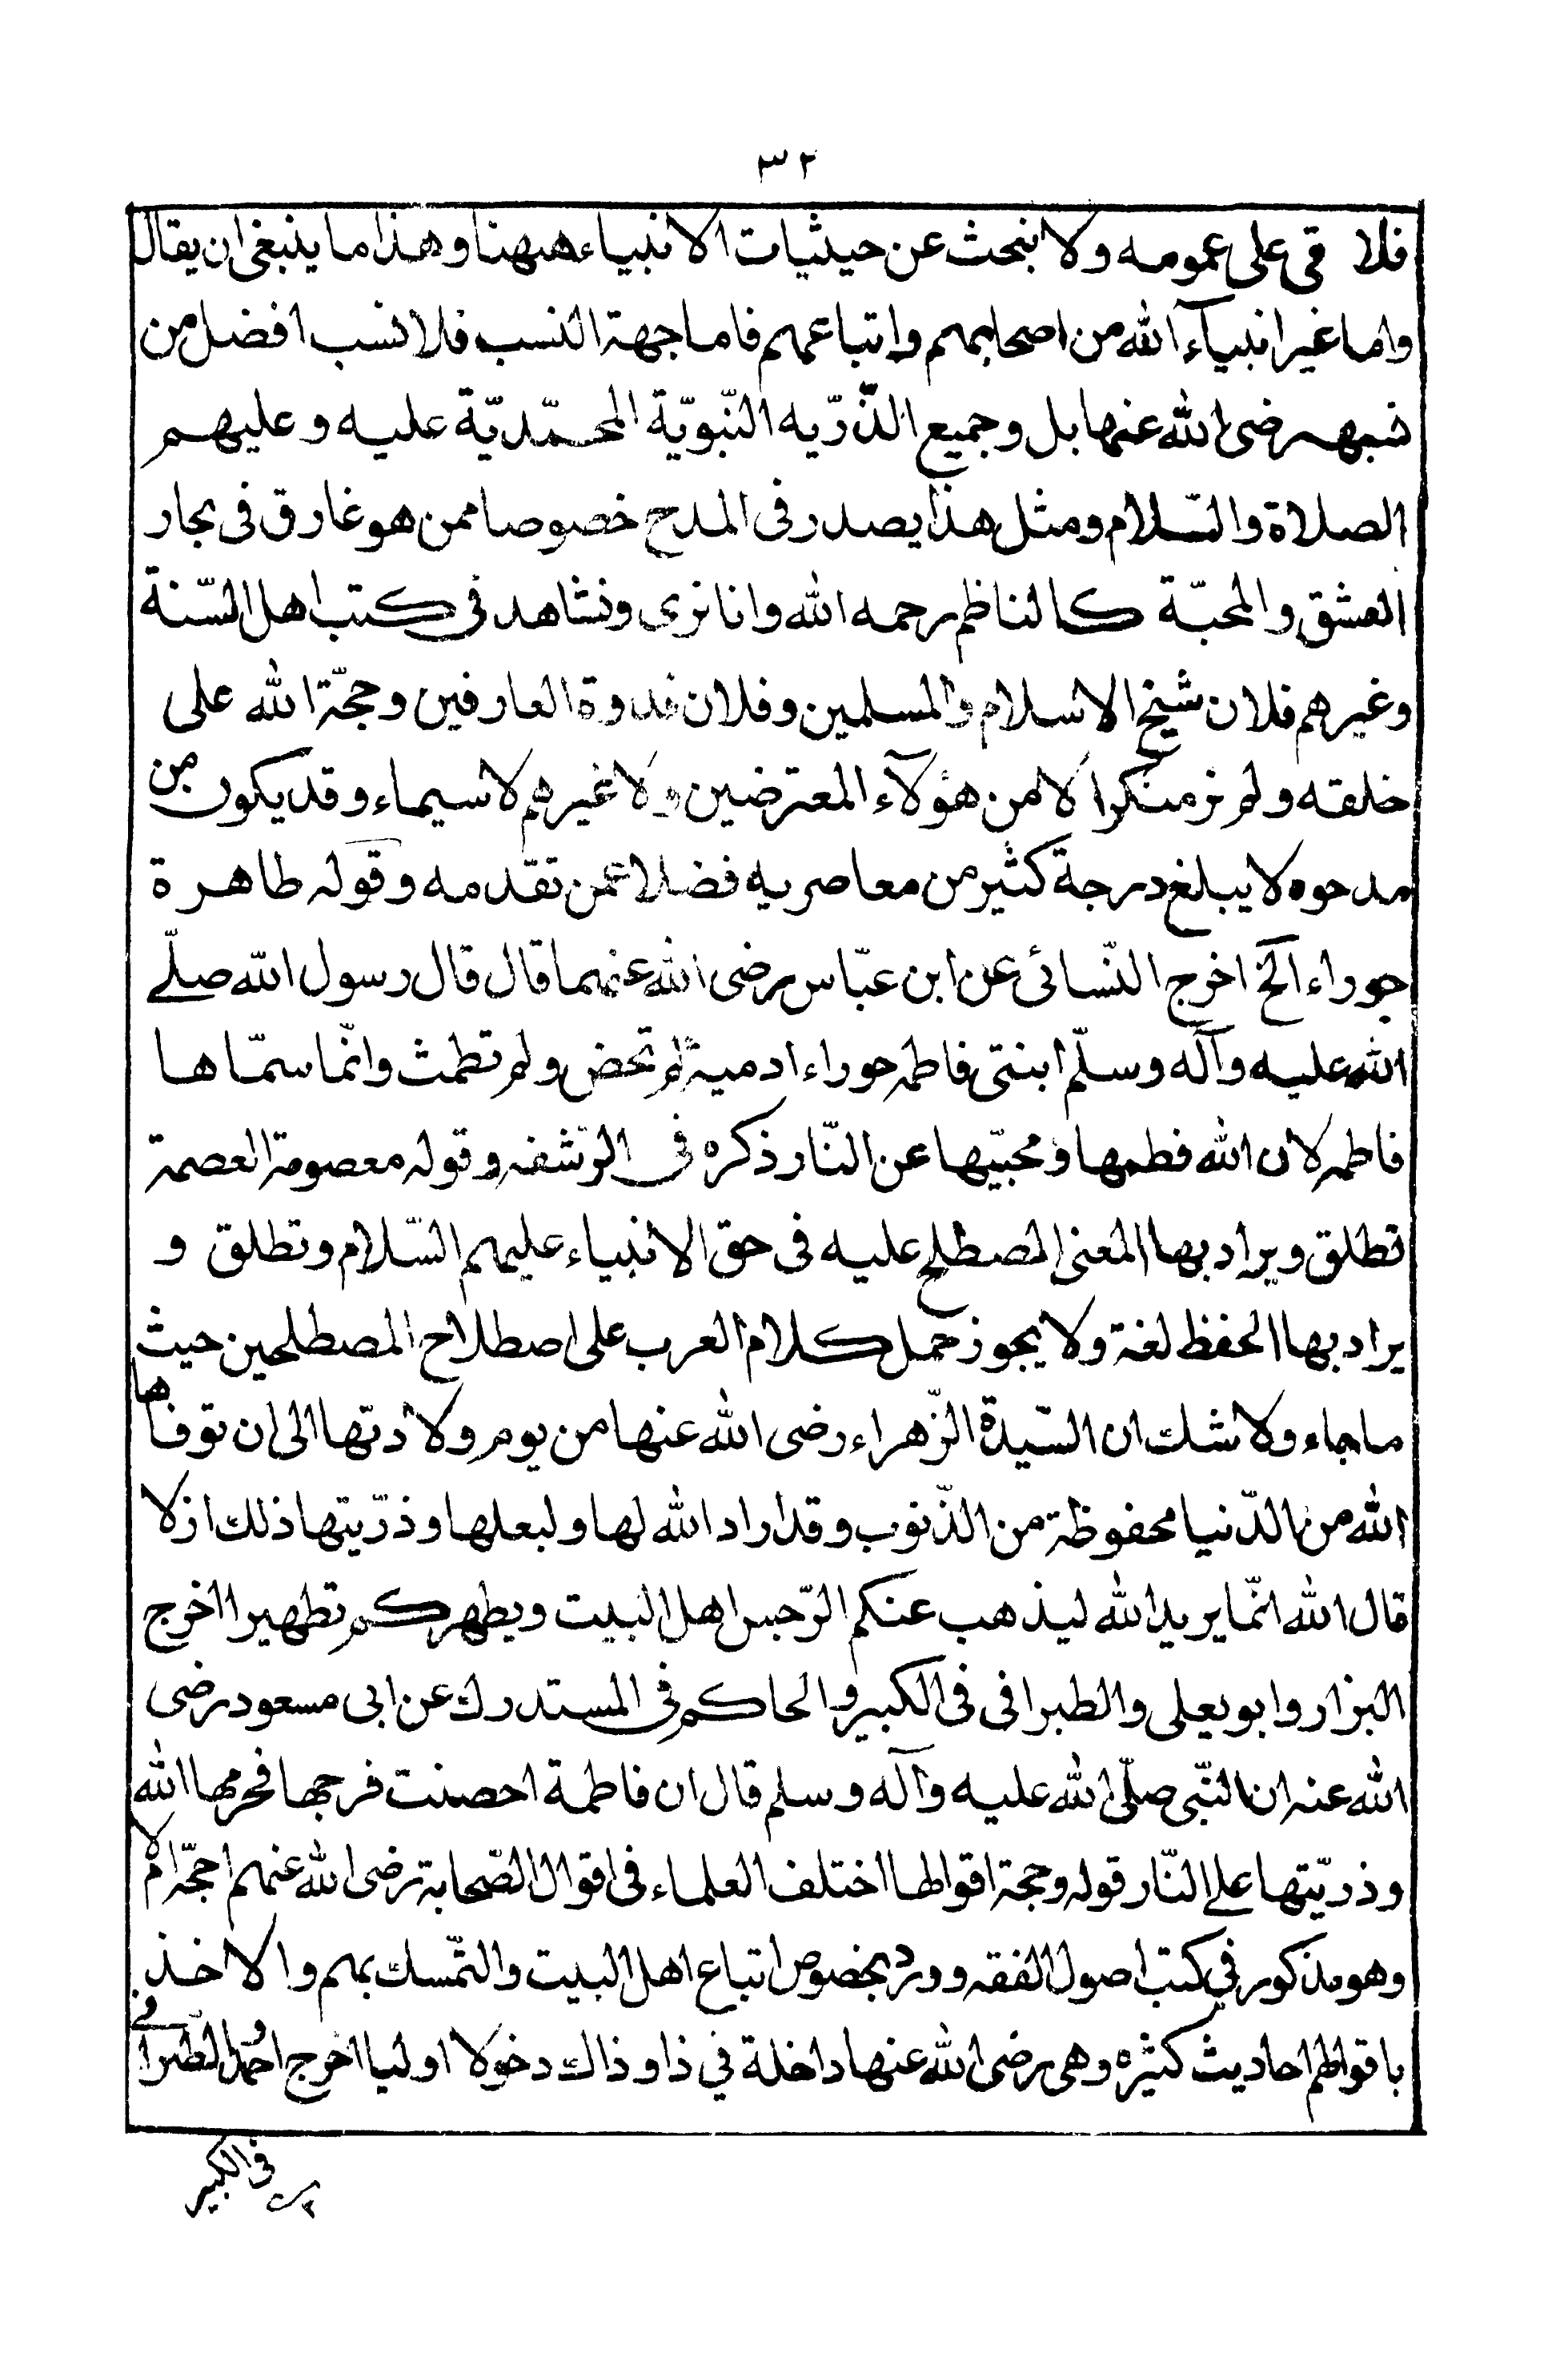 ٣٢
فلا قى على عمومه ولا نبحث عن حيثيات الانبياء ههنا وهذا ما ينبغى ان يقال
واما غير انبيآء الله من اصحابهم واتباعهم فاما جهة النسب فلا نسب افضل من
نسبها رضى الله عنها بل وجميع الذّرّيه النّبويّة المحمّديّة عليه وعليهم
الصلاة والسّلام ومثل هذا يصدر فى المدح خصوصا ممن هو غارق فى بحار
العشق والمحبّة كالناظم رحمه الله وانا نرى ونشاهد فى كتب اهل السّنة
وغيرهم فلان شيخ الاسلام والمسلمين وفلان قدوة العارفين وحجّة الله على
خلقه ولم نر منكرا لا من هؤلآء المعترضين ولا غيرهم لا سيماء وقد يكون من
مدحوه لا يبلغ درجة كثير من معاصريه فضلا عمن تقدمه وقوله طاهرة
حوراء الخ اخرج النّسائى عن ابن عبّاس رضى الله عنهما قال قال رسول الله صلّے
الله عليه وآله وسلّم ابنتى فاطمه حوراء ادمية لم تحض ولم تطمث وانّما سمّاها
فاطمه لان الله فطمها ومحبّيها عن النّار ذكره فى الرّشفه وقوله معصومة العصمة
تطلق ويراد بها المعنى المصطلح عليه فى حق الانبياء عليهم السّلام وتطلق و
يراد بها الحفظ لغة ولا يجوز حمل كلام العرب على اصطلاح المصطلحين حيث
ماجاء ولا شك ان السّيدة الزّهراء رضى الله عنها من يوم ولادتها الى ان توفاها
الله من الدّنيا محفوظة من الذّنوب وقد اراد الله لها ولبعلها وذرّيتها ذلك ازلا
قال الله انّما يريد الله ليذهب عنكم الرّجس اهل البيت ويطهركم تطهيرا اخرج
البزار وابو يعلى والطبرانى فى الكبير والحاكم فى المستدرك عن ابى مسعود رضى
الله عنه ان النّبى صلّى الله عليه وآله وسلم قال ان فاطمة احصنت فرجها فحرمها الله
وذرّيّتها علے النّار قوله وحجة اقوالها اختلف العلماء فى اقوال الصّحابة رضى الله عنهم احجّة ام لا
وهو مذكور في كتب اصول الفقه وورد بخصوص اتباع اهل البيت والتّمسك بهم والاخذ
باقوالهم احاديث كثيره وهى رضى الله عنها داخلة في ذا وذاك دخولا اوليا اخرج احمد والطّبرانى
فى الكبير